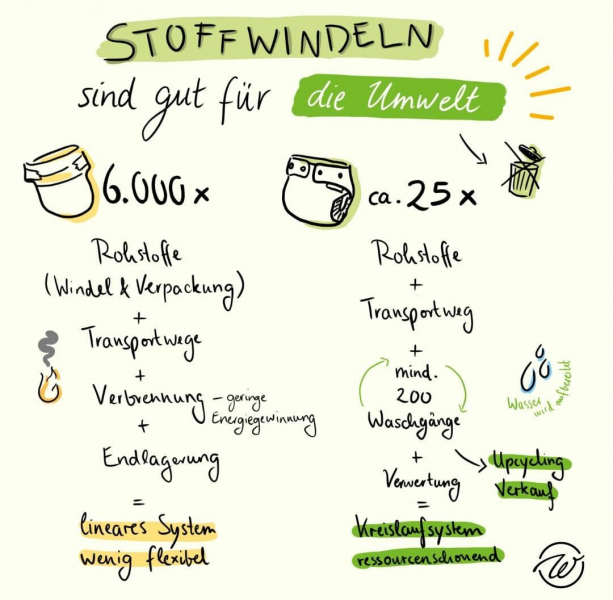 STOFFWINDELN
sind gut für die Umwelt
6.000 x
Rohstoffe
(Windel & Verpackung)
+
Transportwege
+
Verbrennung – geringe
Energiegewinnung
+
Endlagerung
=
lineares System
wenig flexibel
ca. 25 x
Rohstoffe
+
Transportweg
+
mind.
200
Waschgänge
Wasser
wird aufbereitet
+
Verwertung
Upcycling
Verkauf
=
Kreislaufsystem
ressourcenschonend
W